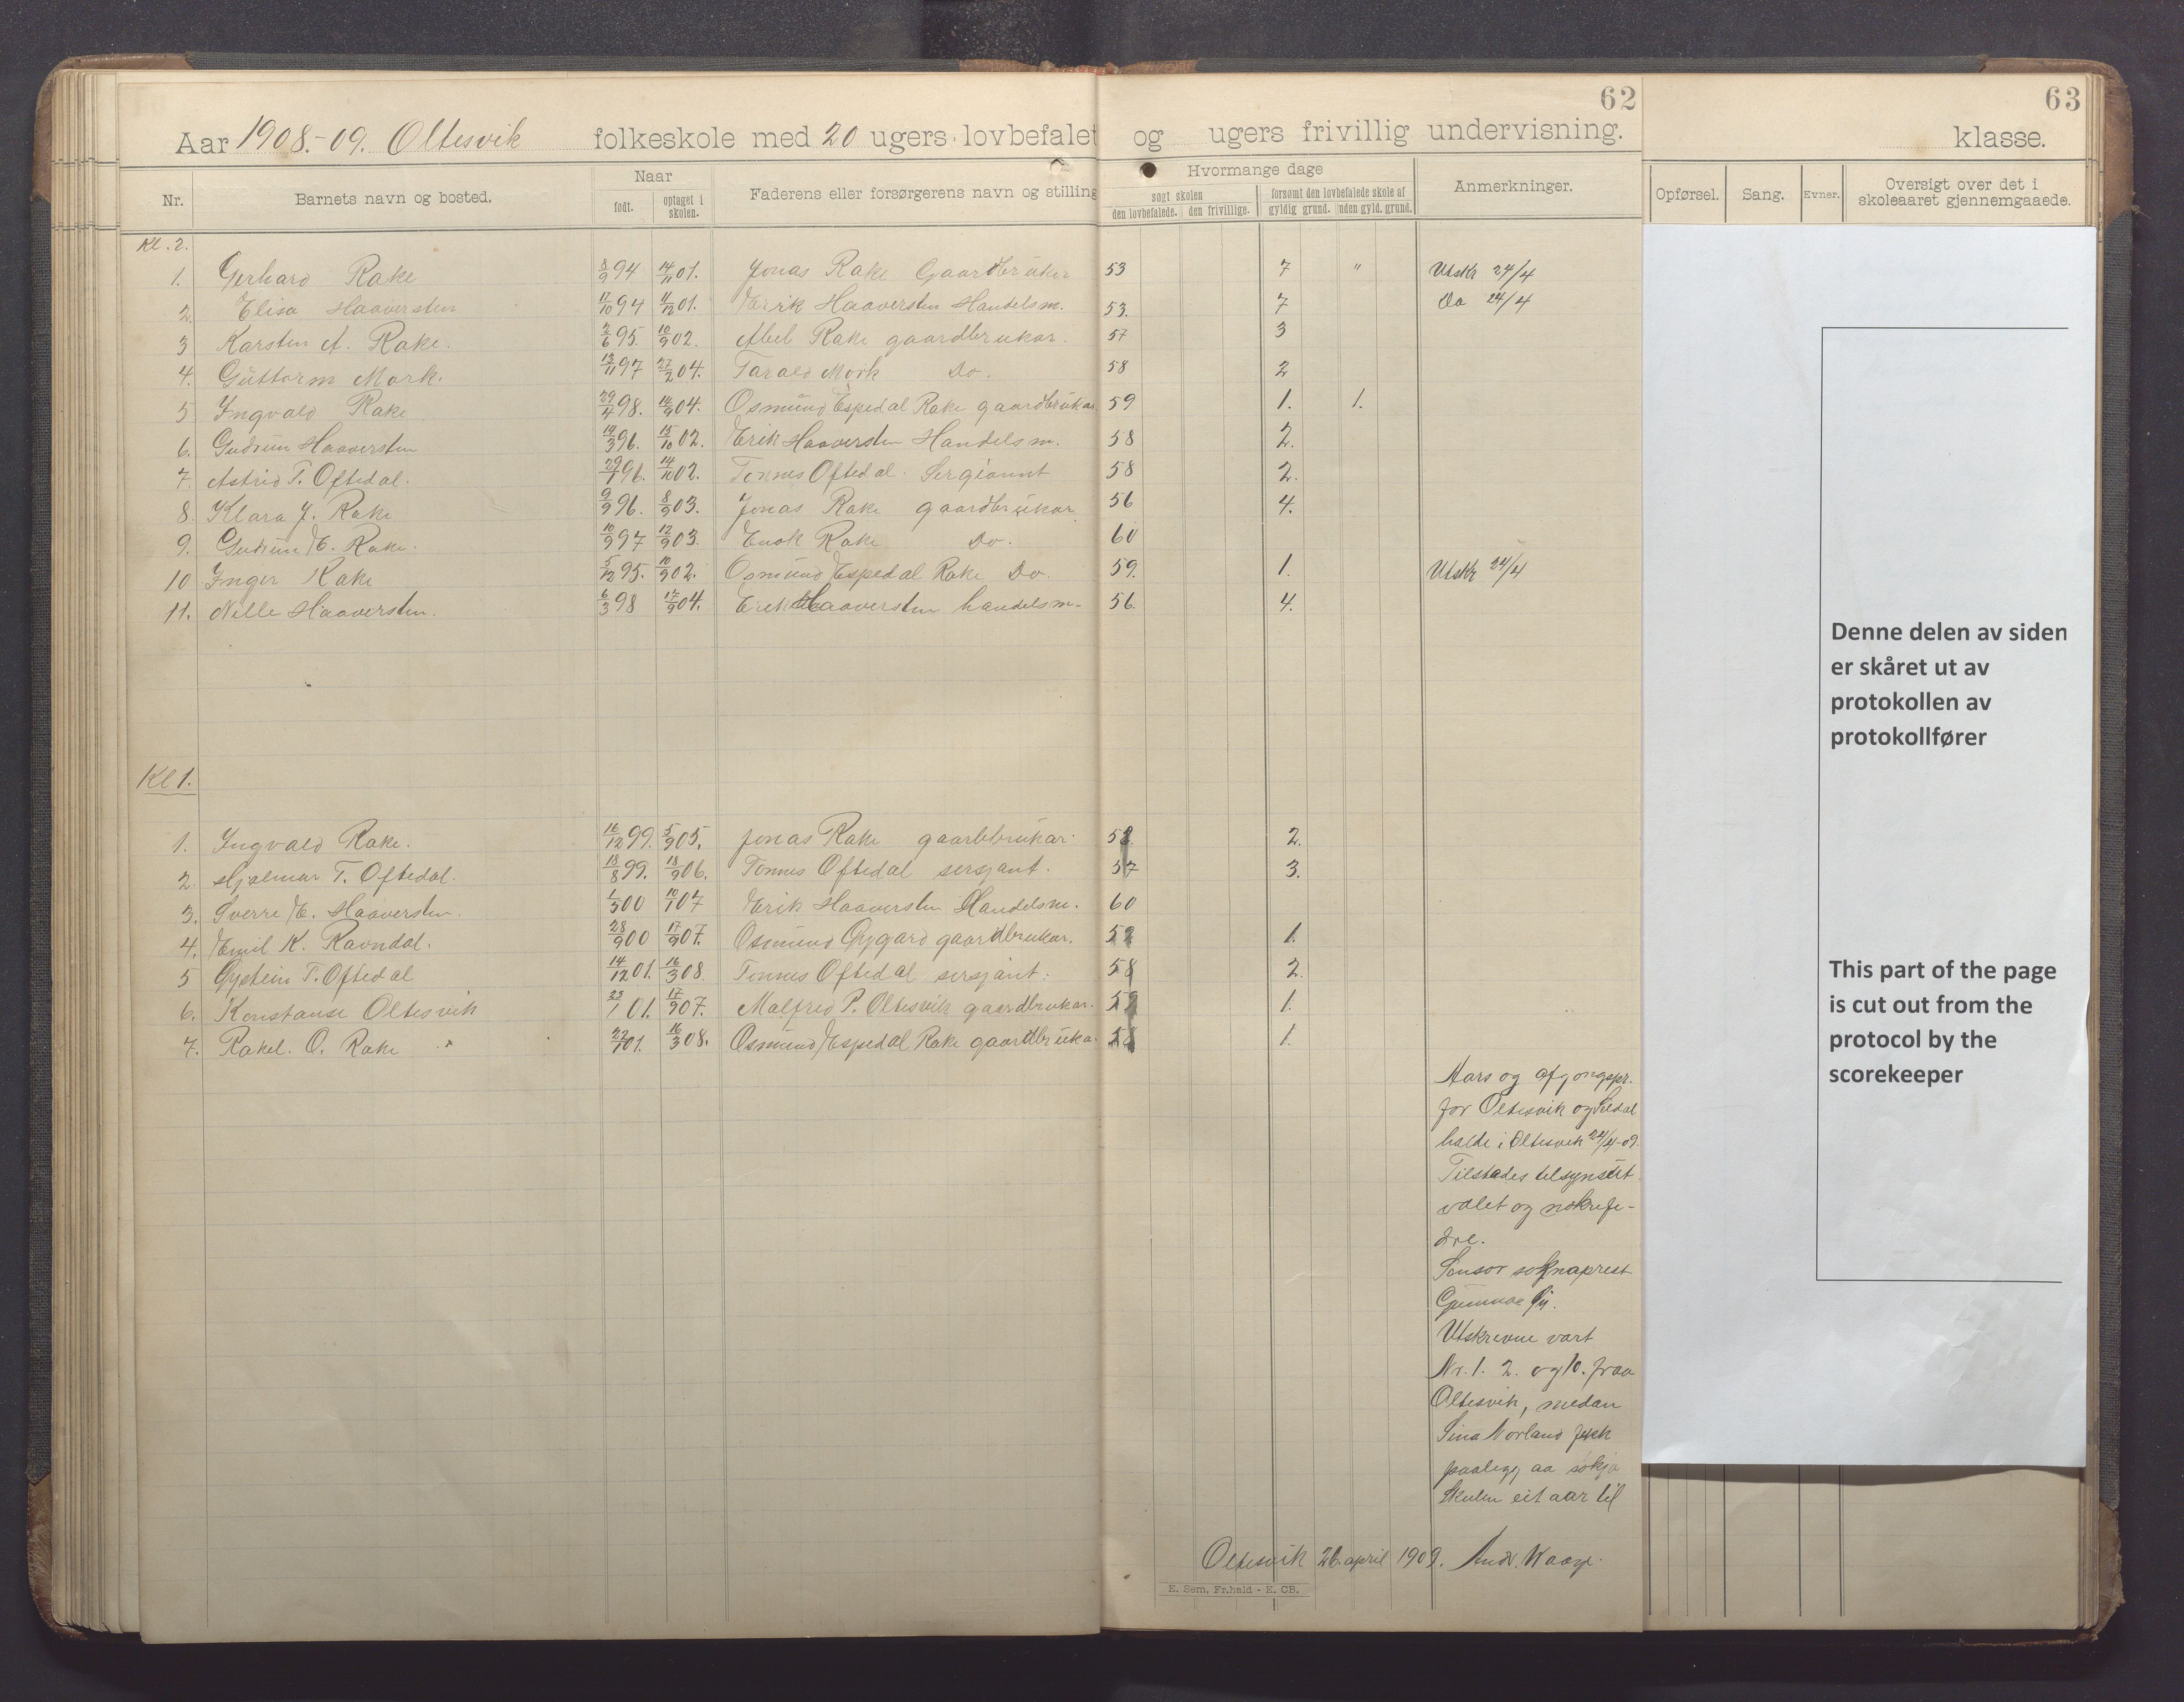 62
63
Aar 1908.-09. Oltesvik folkeskole med 20 ugers lovbefalet og ugers frivillig undervisning. klasse.
Nr. Barnets navn og bosted. Naar født. optaget i skolen. Faderens eller forsørgerens navn og stilling Hvormange dage søgt skolen den lovbefalede. den frivillige. forsømt den lovbefalede skole af gyldig grund. uden gyld. grund. Anmerkninger. Opførsel. Sang. Evner. Oversigt over det i skoleaaret gjennemgaaede.
Kl. 2.
1. Gerhard Rake 8/9 94 14/11 01. Jonas Rake Gaardbruker 53 7 " Utskr 24/4
2. Elisa Haaversten 17/10 94 11/12 01. Eirik Haaversten Handelsm. 53. 7 Do 24/4
3 Karsten A. Rake. 2/6 95. 10/9 02. Abel Rake gaardbrukar. 57 3
4. Guttorm Mork. 13/11 97 27/2 04. Tarald Mork Do. 58 2
5 Ingvald Rake 29/4 98. 14/9 04. Osmund Espedal Rake gaardbrukar. 59 1. 1.
6. Gudrun Haaversten 14/3 96. 15/10 02. Erik Haaversten Handelsm. 58 2.
7. Astrid T. Oftedal. 29/1 96. 14/10 02. Tønnes Oftedal. Sergiannt 58 2.
8. Klara J. Rake 9/9 96. 8/9 03. Jonas Rake gaardbrukar 56 4.
9. Gudrun E. Rake. 10/9 97 12/9 03. Enok Rake Do. 60
10 Inger Rake 5/12 95. 10/9 02. Osmund Espedal Rake Do. 59. 1. Utskr 24/4
11. Nille Haaversten. 6/3 98 17/9 04. Erik Haaversten handelsm. 56. 4.
Kl 1.
1. Ingvald Rake. 16/12 99. 5/9 05. Jonas Rake gaarbbrukar. 58. 2.
2. Hjalmar T. Oftedal. 18/8 99. 18/9 06. Tønnes Oftedal sersjant. 57 3.
3. Sverre E. Haaversten. 1/5 00 10/1 07 Erik Haaversten Handelsm. 60
4. Emil K. Ravndal. 28/9 00 17/9 07. Osmund Øygard gaardbrukar. 59 1.
5 Øystein T. Oftedal 14/12 01. 16/3 08. Tønnes Oftedal sersjant. 58 2.
6. Konstanse Oltesvik 23/1 01. 17/9 07. Malfred P. Oltesvik gaardbrukar. 59 1.
7. Rakel. O. Rake 22/1 01. 16/3 08. Osmund Espedal Rake gaardbruka. 58 1.
Aars og afgongspr.
for Oltesvik og Seldal
haldt i Oltesvik 24/4-09.
Tilstades tilsynsut
valet og nokre fe-
dre.
Sensor soknaprest
Utskrevne vart
Nr. 1. 2. og 10. fraa
Oltesvik, medan
Sina Norland fekk
paalegg aa søkja
Skulen eit aar til
Oltesvik 26. april 1909. Andr. Kaap.
E. Sem, Fr.hald - E. CB.
Denne delen av siden
er skåret ut av
protokollen av
protokollfører
This part of the page
is cut out from the
protocol by the
scorekeeper